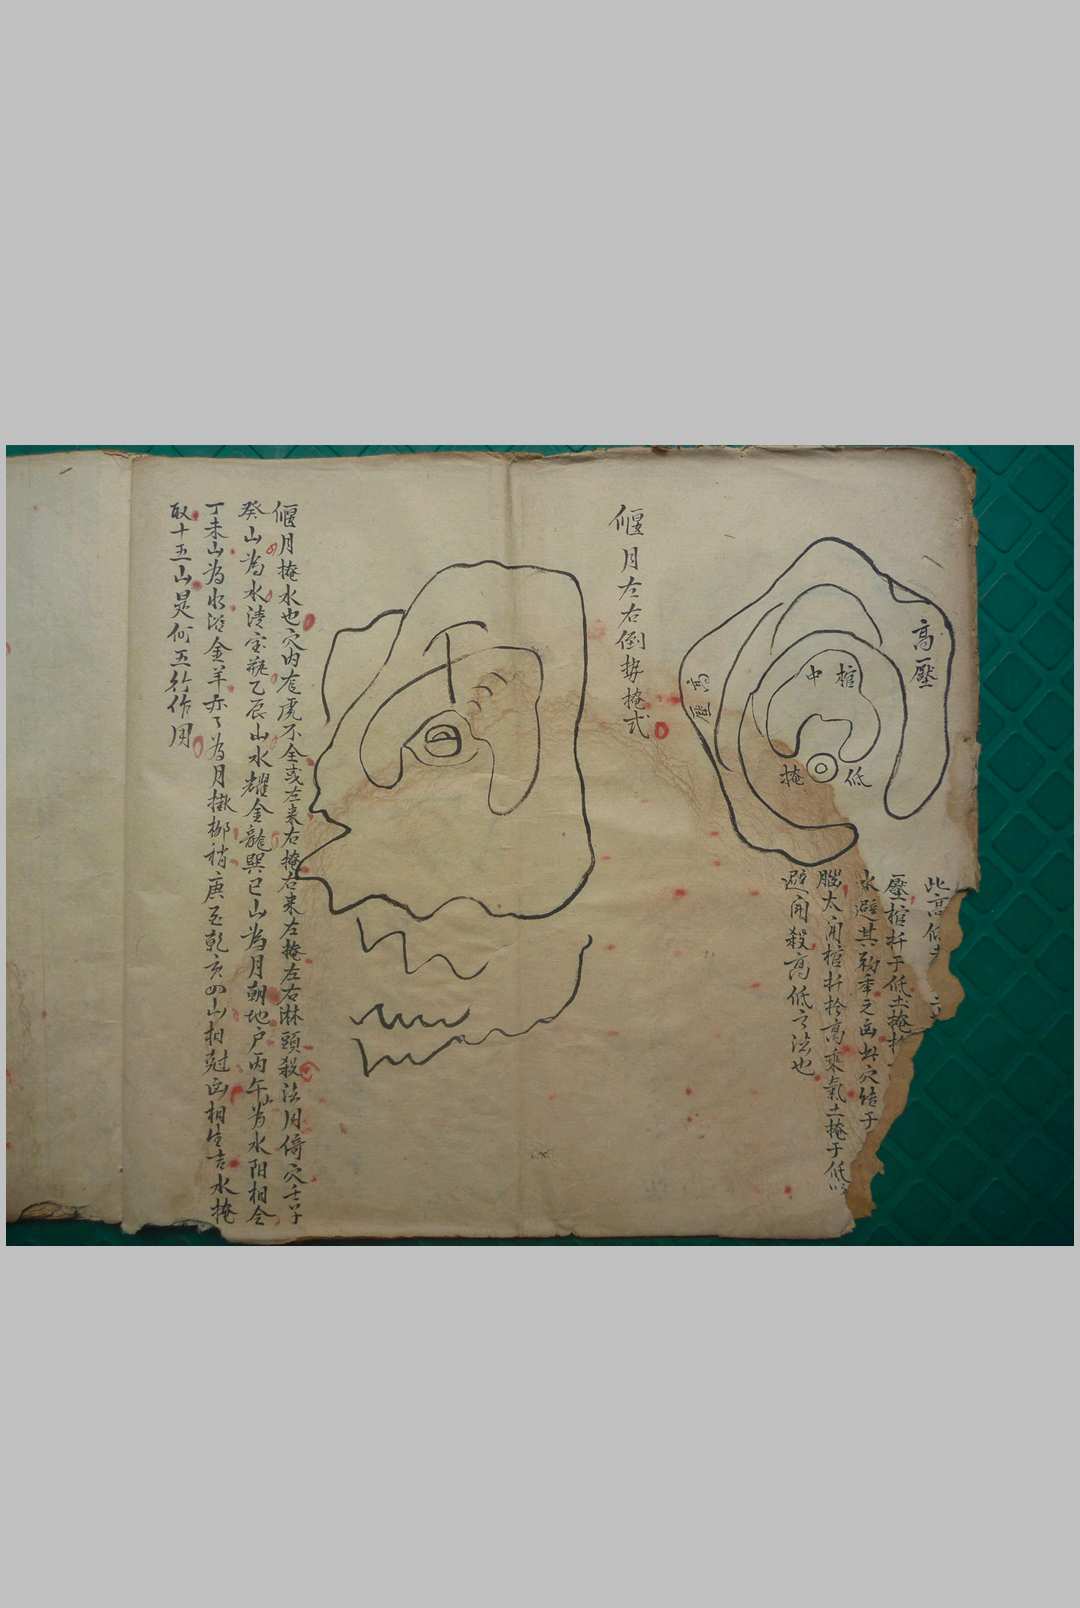 高壓
高壓
棺
中
低
掩
此高低
壓棺扦于低土掩
水避其
之凶此穴結于
腦太
高乘氣土掩于低
避開殺高低之法也
偃月左右倒
掩式
偃月掩水也穴内
虎不全或左来右掩右来左掩左右淋頭殺法用倚穴壬子
癸山為水
宝瓶乙辰山水耀金龍巽巳山為月朝地户丙午山為水
相会
丁未山為水
金羊
為月掛
梢庚
乾亥四山相尅凶相生吉水掩
取十五山是何五行作用